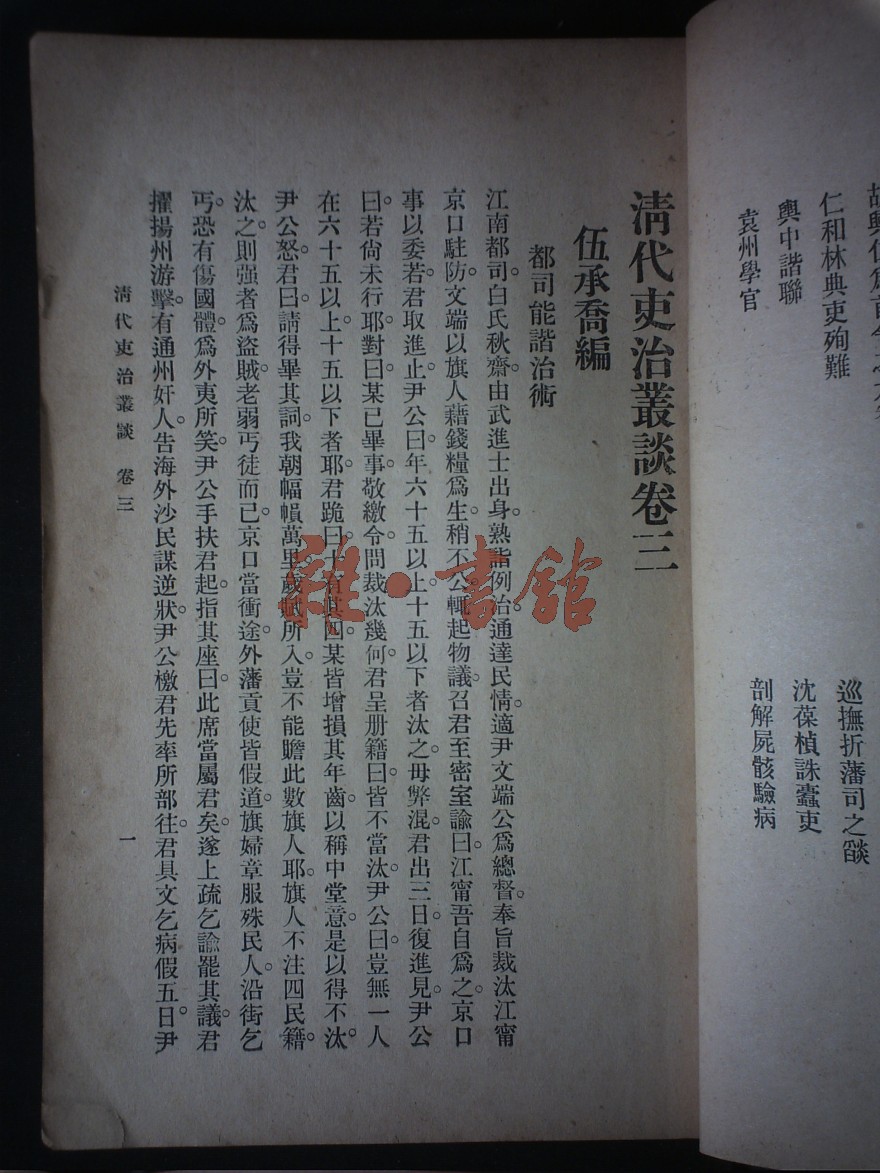 仁和林典吏殉難
輿中諧聯
袁州學官
巡撫折藩司之燄
沈葆楨誅蠹吏
剖解屍骸驗病
清代吏治叢談卷三
伍承喬編
都司能諳治術
江南都司白氏秋齋。由武進士出身。熟諳例治。通達民情。適尹文端公爲總督。奉旨裁汰江甯
京口駐防。文端以旗人藉錢糧爲生。稍不公。輒起物議。召君至密室。諭曰。江甯吾自爲之。京口
事以委若。君取進止。尹公曰。年六十五以上。十五以下者汰之。毋弊混。君出三日。復進見。尹公
曰。若尙未行耶。對曰。某已畢事。敬繳令。問裁汰幾何。君呈册籍曰。皆不當汰。尹公曰。豈無一人
在六十五以上。十五以下者耶。君跪曰。十有其四。某皆增損其年齒。以稱中堂意。是以得不汰。
尹公怒。君曰。請得畢其詞。我朝幅幀萬里。歲賦所入。豈不能贍此數旗人耶。旗人不注四民籍。
汰之。則强者爲盜賊。老弱丐徒而已。京口當衝途。外藩貢使皆假道。旗婦章服殊民人。沿街乞
丐。恐有傷國體。爲外夷所笑。尹公手扶君起。指其座曰。此席當屬君矣。遂上疏乞諭罷其議。君
擢揚州游擊。有通州奸人。告海外沙民謀逆狀。尹公檄君先率所部往。君具文乞病假五日。尹
清代吏治叢談 卷三
一
雜·書館